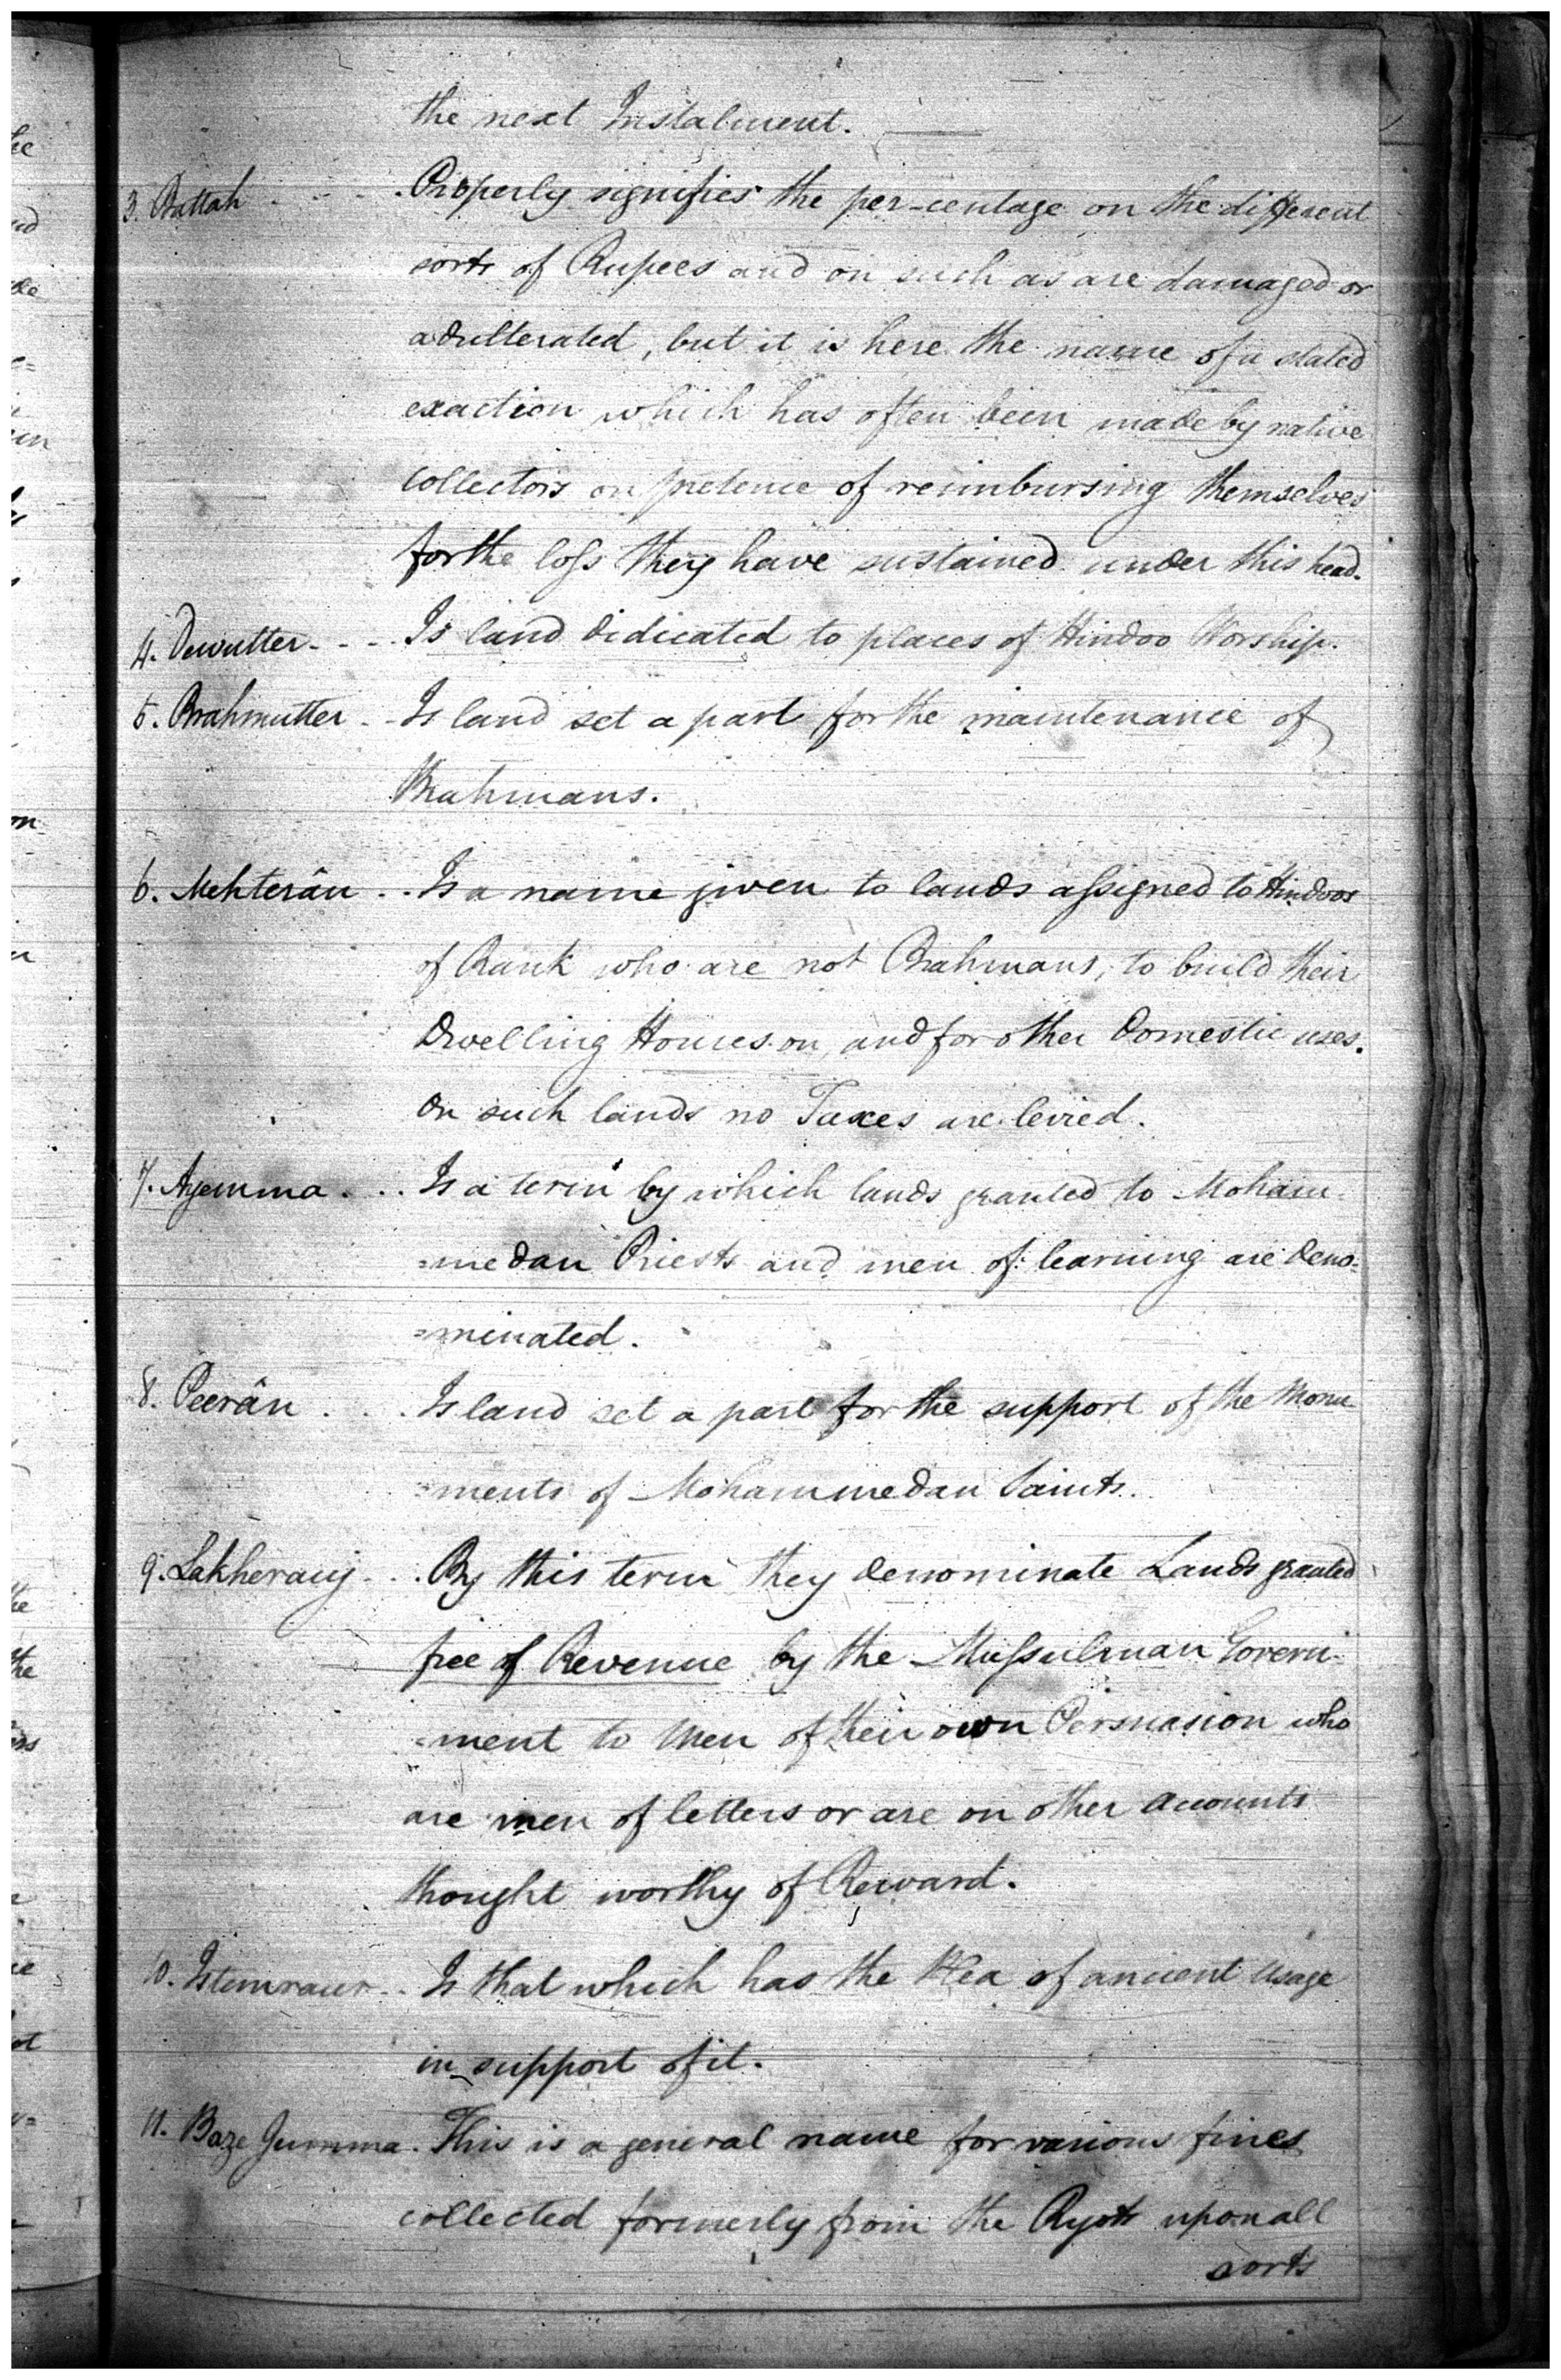 the next Instalment.
3. Battah . . . . Properly signifies the per-centage on the different
sorts of Rupees and on such as are damaged or
adulterated, but it is here the name of a stated
exaction which has often been made by native
collectors on pretence of reimbursing themselves
for the loſs they have sustained under this head.
4. Dewutter - - - Is land didicated to places of Hindoo Worship.
5. Brahmutter - - Is land set a part for the maintenance of
Brahmans.
6. Mehterân - . . Is a name given to lands aſsigned to Hindoos
of Rank who are not Brahmans, to build their
Dwelling Houses on, and for other Domestic uses.
On such lands no Taxes are levied.
7. Ayemma . . . Is a term by which lands granted to Moham-
=medan Priests and men of learning are deno=
=minated.
8. Peerân . . . Is land set a part for the support of the Monu
=ments of Mohammedan Saints.
9. Lakherauj - . . By this term they denominate Lands granted
free of Revenue by the Muſsulman Govern-
=ment to Men of their own Persuasion who
are men of letters or are on other accounts
thought worthy of Reward.
10. Istemraur - . . Is that which has the Plea of ancient Usage
in support of it.
11. Baze Jumma . This is a general name for various fines
collected formerly from the Ryots upon all
sorts